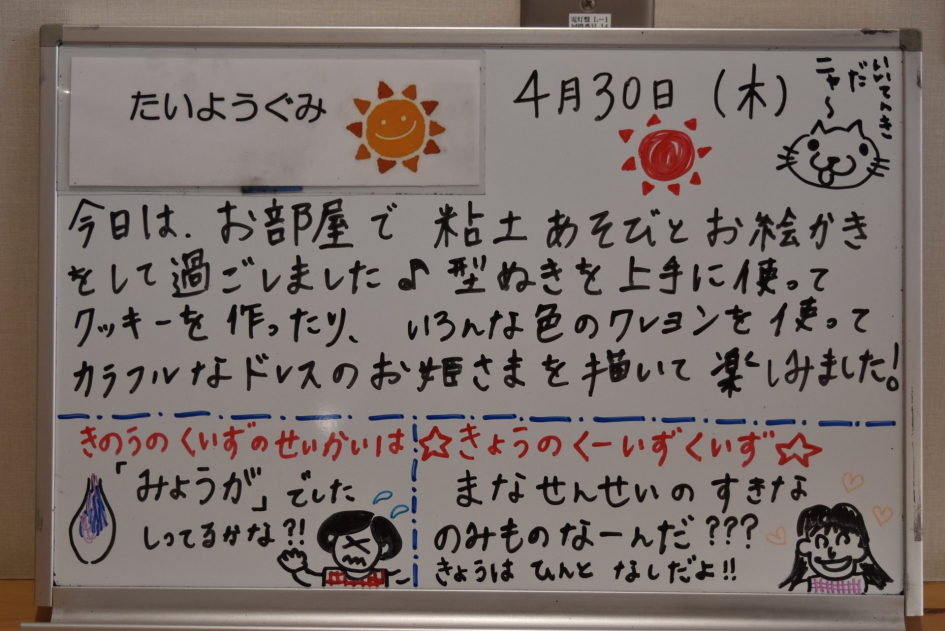 たいようぐみ
4月30日(木)
いいてんき
だ
ニャ〜
今日は、お部屋で 粘土あそびとお絵かき
をして過ごしました♪型ぬきを上手に使って
クッキーを作ったり、いろんな色のクレヨンを使って
カラフルなドレスのお姫さまを描いて楽しみました!
きのうのくいずのせいかいは
「みょうが」でした
しってるかな?!
☆きょうのくーいずくいず☆
まなせんせいのすきな
のみものなーんだ???
きょうは ひんと なしだよ!!